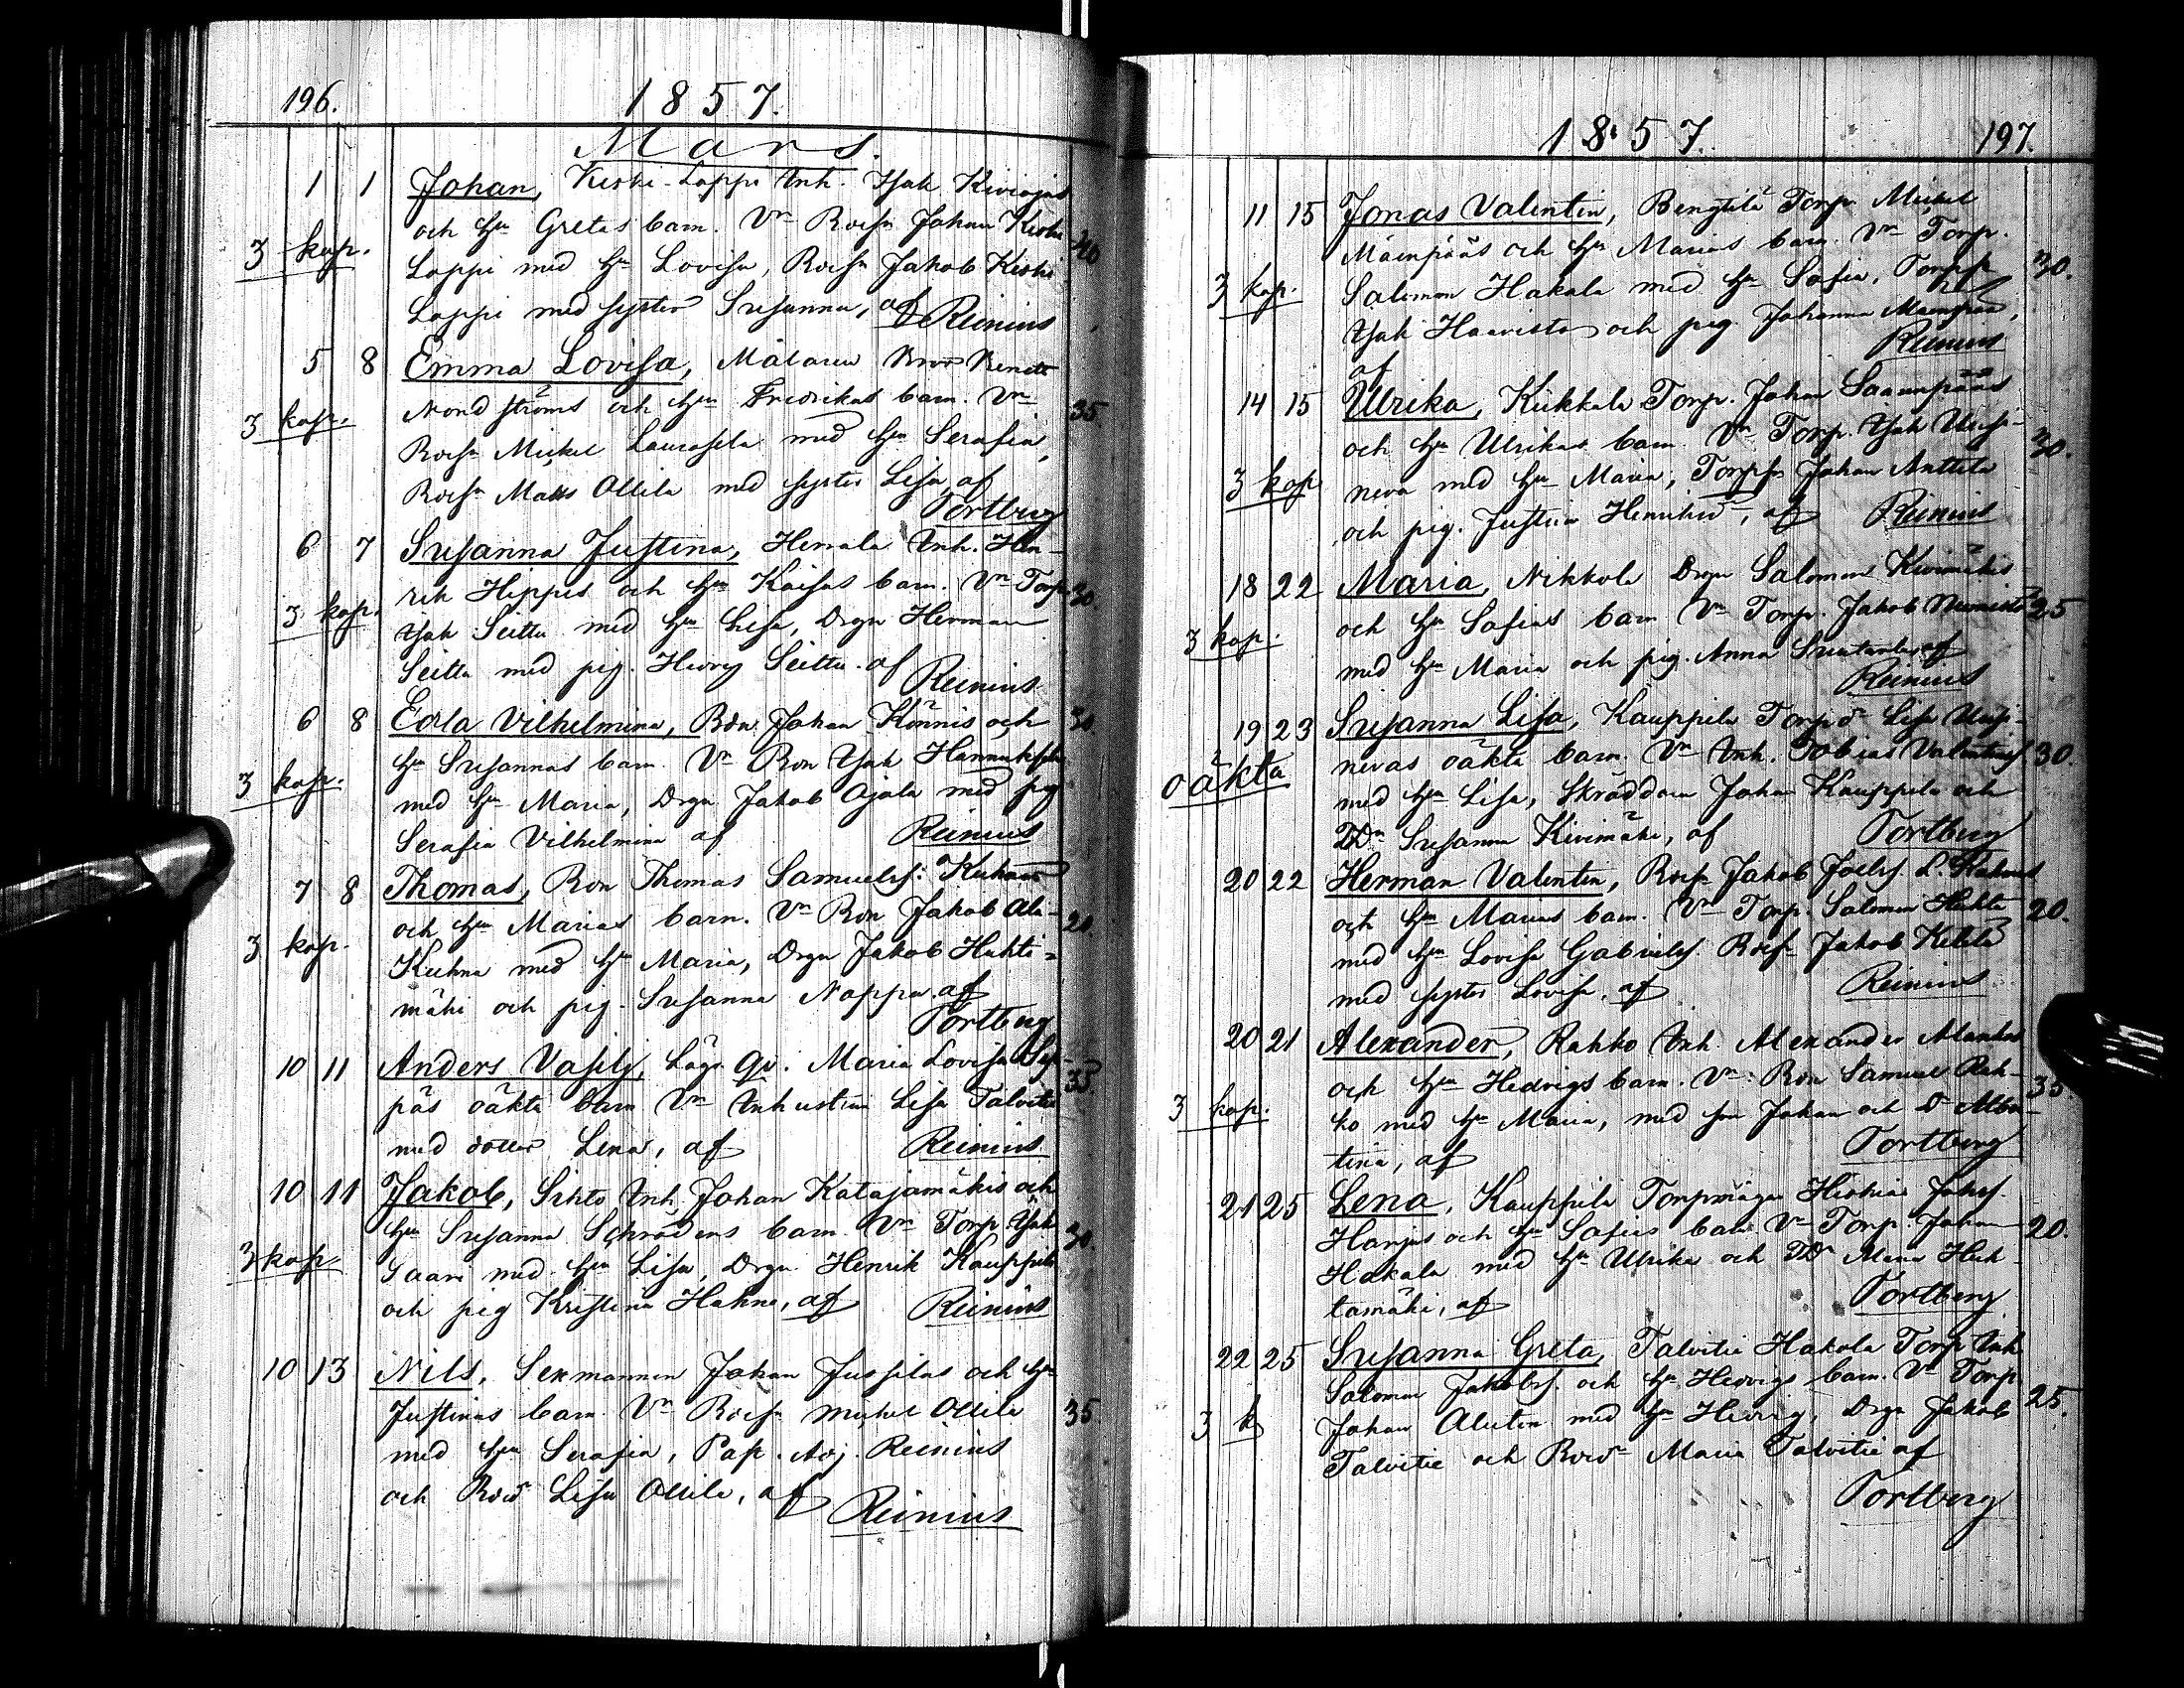 196.
1857.
Mars.
1 1 Johan, Keski-Loppi Inh. Isak Kiviojas
och hu Gretas barn. Vn Rocsn Johan Keski- 40
3 kop.
Loppi med hu Lovisa, Rocsn Jakob Keski
Loppi med syster Susanna, af Reinius
5 8 Emma Lovisa, Målaren
Nordströms och hu Fredrikas barn. Vn 35.
3 kop.
Rocsn Mickel Laurosela med hu Serafia,
Rocsn Matts Ollila med syster Lisa, af
Portberg
6 7 Susanna Justina, Herrala Inh. Hen-
rik Hippis och hu Kaisas barn. Vn Torp. 30.
3 kop.
Isak Seittu med hu Lisa, Drgn Herman
Seittu med pig. Hedvig Seittu. af Reinius
6 8 Edla Vilhelmina, Bdn Johan Könnis och 30.
hu Susannas barn. Vn Bdn Isak
3 kop.
med hu Maria, Drgn Jakob Ojala med pig
Serafia Vilhelmina af Reinius
7 8 Thomas, Bdn Thomas Samuelss. Kuhnas
och hu Marias barn. Vn Bdn Jakob Ala- 20.
3 kop.
Kuhna med hu Maria, Drgn Jakob Huhti-
mäki och pig. Susanna Noppa. af
Portberg
10 11 Anders Vasilj, Lägr. qv. Maria Lovisa Sep-
päs oäkta barn Vn Inhustrun Lisa Talvitie 35.
med dotter Lena, af Reinius
10 11 Jakob, Sihto Inh. Johan Katajamäkis och
hu Susanna Schröders barn. Vn Torp. Isak 30.
3 kop.
Saari med hu Lisa, Drgn Henrik Kauppila
och pig Kristina Hahna, af Reinius
10 13 Nils, Sexmannen Johan Jussilas och hu
Justinas barn. Vn Rocsn Mickel Ollila 35
med hu Serafia, Past. Adj. Reinius
och Rocd Lisa Ollila, af Reinius
1857.
197.
11 15 Jonas Valentin, Bengtilä Torp. Mickel
Mäenpääs och hu Marias barn. Vn Torp. 30.
3 kop.
Salomon Hakala med hu Sofia, Torpp
Isak Haavisto och pig. Johanna Mäenpää,
af Reinius
14 15 Ulrika, Kukkola Torp. Johan Saarenpääs
och hu Ulrikas barn. Vn Torp. Isak Uusi- 30.
3 kop
neva med hu Maria, Torpsn Johan Anttila
och pig. Justina Henriksd, af Reinius
18 22 Maria, Nikkola Drgn Salomon Kivimäkis
och hu Sofias barn Vn Torp. Jakob Niemistö 25
3 kop.
med hu Maria och pig. Anna af
Reinius
19 23 Susanna Lisa, Kauppila Torpd Lisa Uusi-
nevas oäkta barn. Vn Inh. Tobias Valentinss 30.
oäkta
med hu Lisa, Skräddare Johan Kauppila och
TDr Susanna Kivimäki, af Portberg
20 22 Herman Valentin, Rocsn Jakob Joelss. L. Hahnas
och hu Marias barn. Vn Torp. Salomon Huhta 20.
med hu Lovisa Gabrielsd. Rocsn Jakob Kittilä
med syster Lovisa, af Reinius
20 21 Alexander, Rahko Inh Alexander Alankos
och hu Hedvigs barn. Vn. Bdn Samuel Rah- 35
3 kop.
ko med hu Maria, med son Johan och D Alber-
tina, af Portberg
21 25 Lena, Kauppila Torpmågn Hiskias Johss.
Harjus och hu Sofias barn Vn Torp. Johan 20.
Hakala med hu Ulrika och TDr Maria Huh-
tamäki, af Portberg
22 25 Susanna Greta, Talvitie Hakola Torp Inh
Salomon Jakobss. och hu Hedvigs barn. Vn Torp
3 k
Johan Alutin med hu Hedvig, Drgn Jakob 25.
Talvitie och Rocd Maria Talvitie af
Portberg